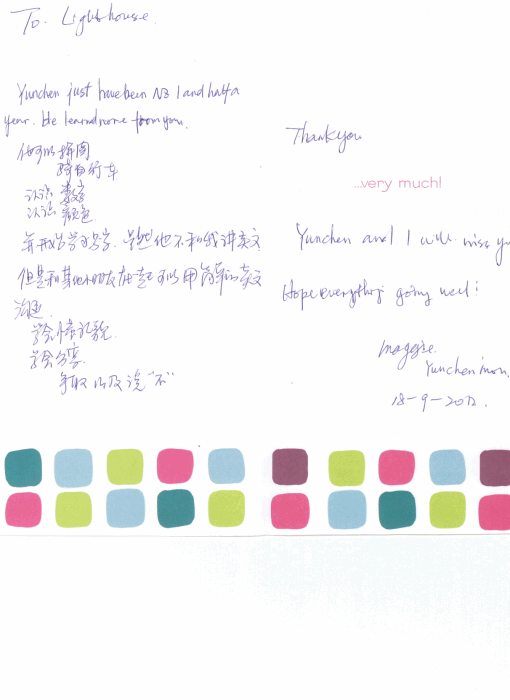 To. Lighthouse.
Yunchen just have been NZ 1 and half a
year. He learnd more from you.
他可以拼图
骑自行车
认识 数字
认识 颜色
并开始学习写字. 虽然他不和我讲英文
但是和其他小朋友在一起可以用简单的英文
沟通.
学会 礼貌.
学会分享.
争取以及说“不”
Thank you
...very much!
Yunchen and I will miss yo
Hope everything going well!
Maggie.
Yunchen' mom.
18-9-2012.